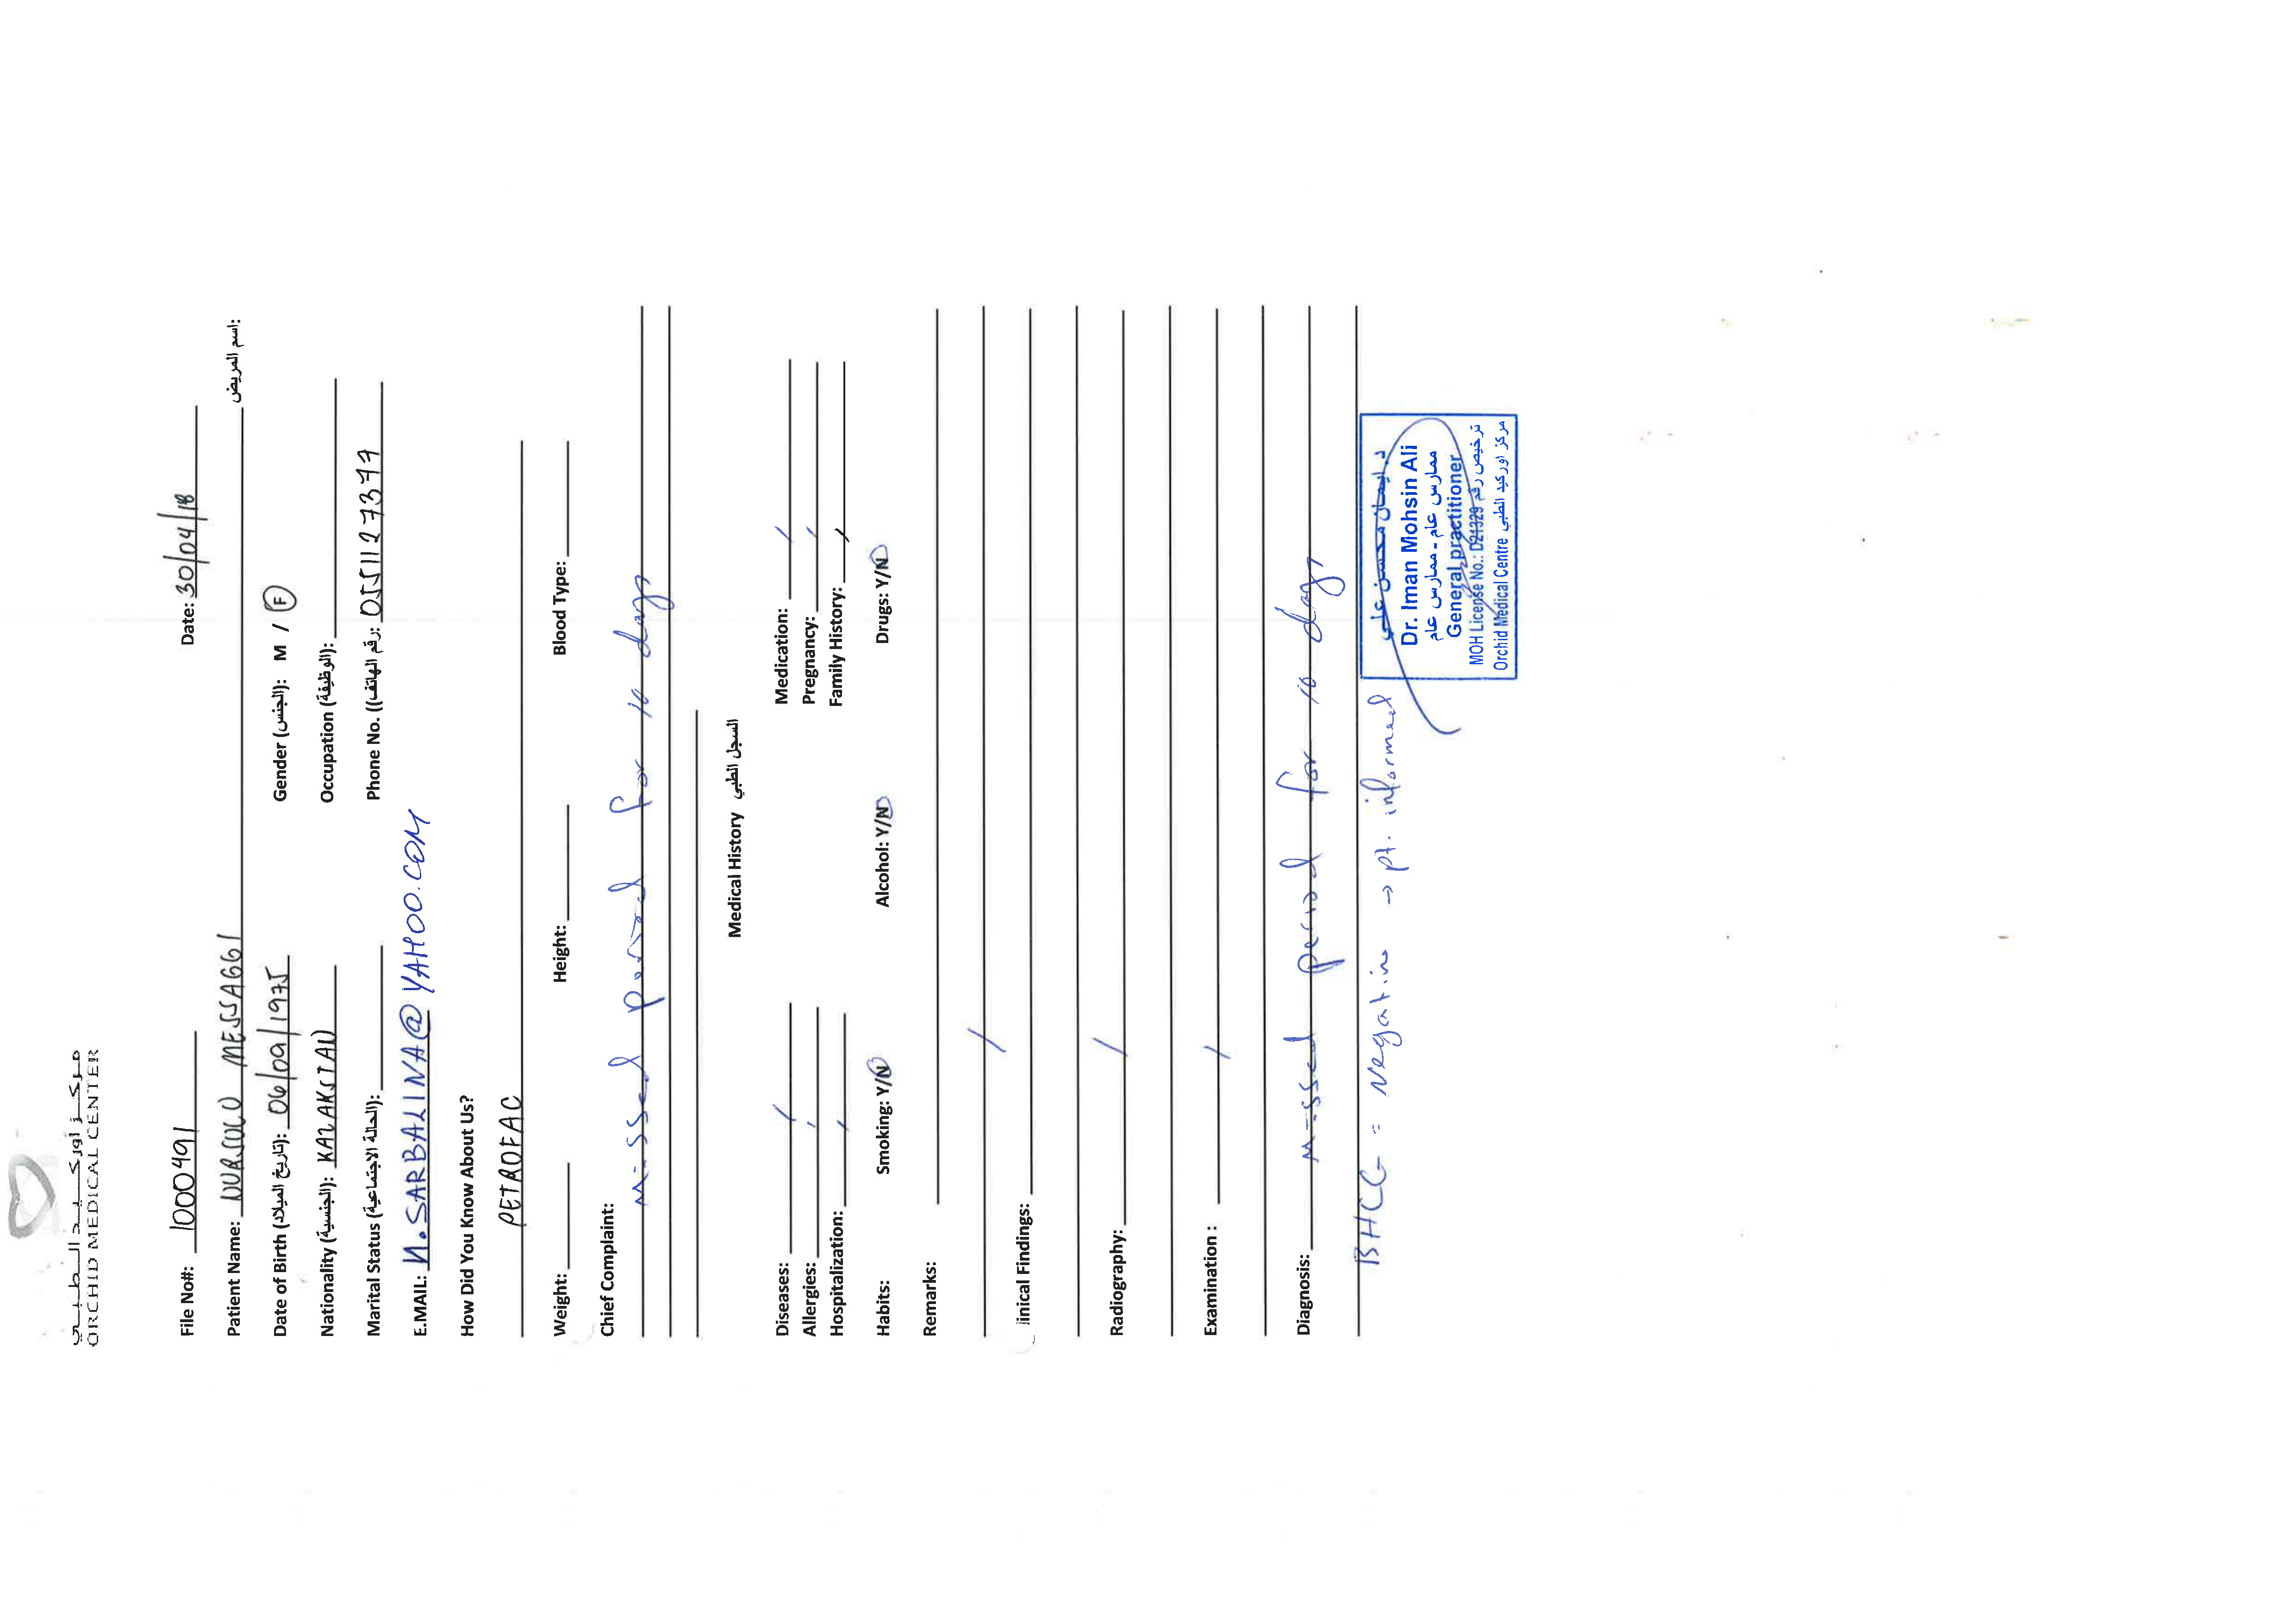 مركز أوركيد الطبي
ORCHID MEDICAL CENTER
File No#: 1000491 Date: 30/04/18
Patient Name: NURSULU MESSAGGI اسم المريض:
Date of Birth (تاريخ الميلاد): 06/09/1975 Gender (الجنس): M / F
Nationality (الجنسية): KAZAKSTAN Occupation (الوظيفة):
Marital Status (الحالة الاجتماعية): Phone No. ((رقم الهاتف): 0551127377
E.MAIL: N.SARBALINA@YAHOO.COM
How Did You Know About Us?
PETROFAC
Weight: Height: Blood Type:
Chief Complaint:
missed period for 10 days
Medical History السجل الطبي
Diseases: / Medication: /
Allergies: / Pregnancy: /
Hospitalization: / Family History: /
Habits: Smoking: Y/N Alcohol: Y/N Drugs: Y/N
Remarks:
/
linical Findings:
Radiography: /
Examination : /
Diagnosis: missed period for 10 days
BHCG = Negative → pt. informed
د. ايمان محسن علي
Dr. Iman Mohsin Ali
ممارس عام - ممارس عام
General practitioner
MOH License No.: D21329 ترخيص رقم
Orchid Medical Centre مركز اوركيد الطبي